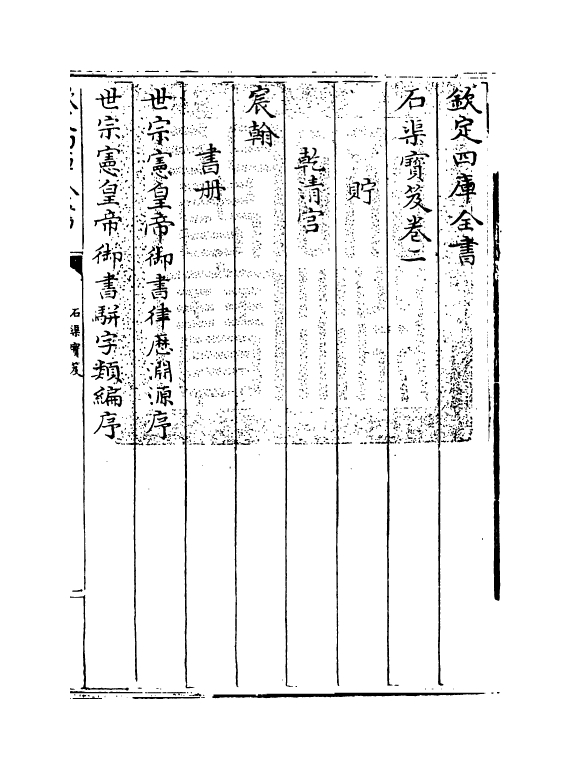 欽定四庫全書
石渠寶笈卷二
貯
乾清宮
宸翰
書册
世宗憲皇帝御書律歷淵源序
世宗憲皇帝御書駢字類編序
石渠寶笈